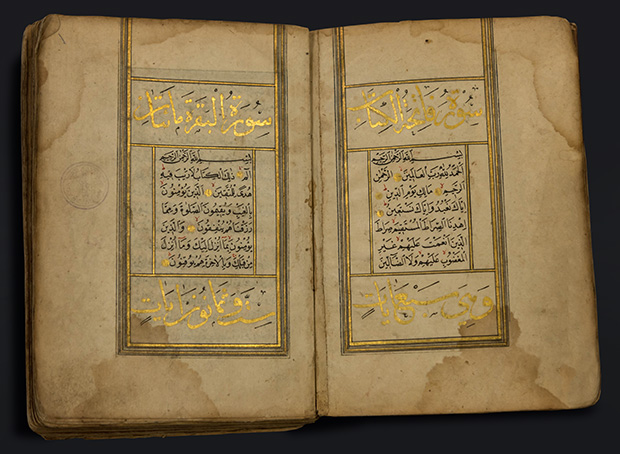 سورة فاتحة الكتاب
بِسْمِ اللهِ الرَّحْمٰنِ الرَّحِيمِ
اَلْحَمْدُ لِلّٰهِ رَبِّ الْعَالَمِينَ الرَّحْمٰنِ
الرَّحِيمِ مَالِكِ يَوْمِ الدِّينِ
اِيَّاكَ نَعْبُدُ وَاِيَّاكَ نَسْتَعِينُ
اِهْدِنَا الصِّرَاطَ الْمُسْتَقِيمَ صِرَاطَ
الَّذِينَ اَنْعَمْتَ عَلَيْهِمْ غَيْرِ
الْمَغْضُوبِ عَلَيْهِمْ وَلَا الضَّالِّينَ
وهي سبع ايات
سورة البقرة مائتان
بِسْمِ اللهِ الرَّحْمٰنِ الرَّحِيمِ
الٓمٓ ذٰلِكَ الْكِتَابُ لَا رَيْبَ فِيهِ
هُدًى لِلْمُتَّقِينَ اَلَّذِينَ يُؤْمِنُونَ
بِالْغَيْبِ وَيُقِيمُونَ الصَّلٰوةَ وَمِمَّا
رَزَقْنَاهُمْ يُنْفِقُونَ وَالَّذِينَ
يُؤْمِنُونَ بِمَا اُنْزِلَ اِلَيْكَ وَمَا اُنْزِلَ
مِنْ قَبْلِكَ وَبِالْاٰخِرَةِ هُمْ يُوقِنُونَ
ست وثمانون ايات